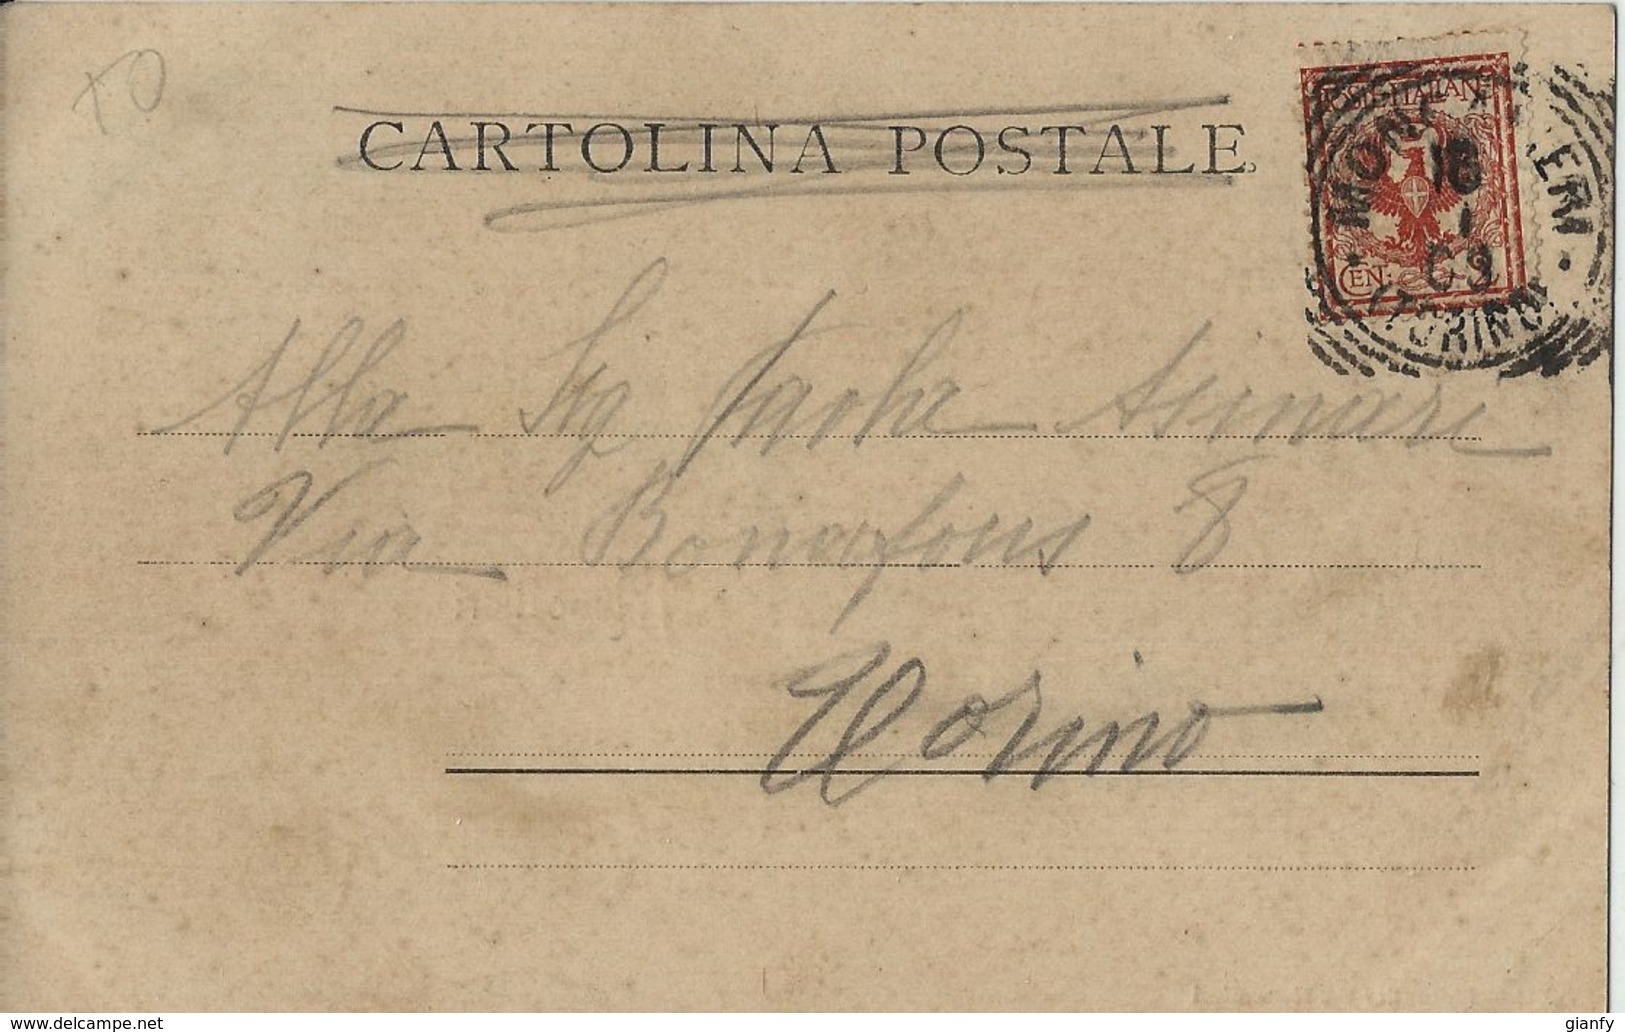 TO
CARTOLINA POSTALE
POSTE ITALIANE
CEN: 2
MONCALIERI
16
1
03
(TORINO)
Alla Sig Paola Asinari
Via Bonafous 8
Torino
www.delcampe.net
gianfy